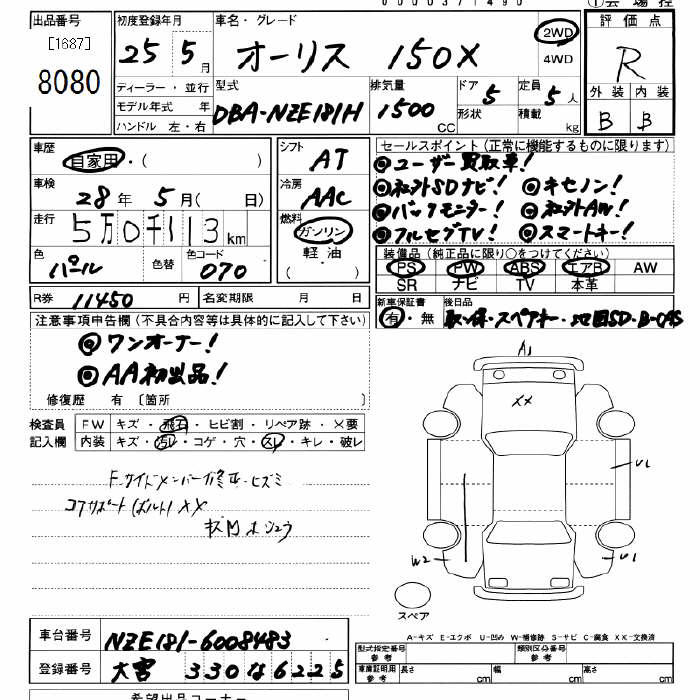 出品番号
[1687]
8080
初度登録年月
25 年 5 月
車名・グレード
オーリス 150X
2WD
4WD
評価点
R
外装 内装
B B
ディーラー・並行
モデル年式 年
ハンドル 左・右
型式
DBA-NZE181H
排気量
1500 CC
ドア 5
形状
定員 5 人
積載 kg
車歴
自家用・( )
シフト AT
車検
28年 5月( 日)
冷房 AAC
走行
5万0千113km
燃料
ガソリン
軽油
( )
色 パール
色替
色コード 070
R券 11450 円
名変期限 月 日
セールスポイント(正常に機能するものに限ります)
◎ユーザー買取車!
◎社外SDナビ! ◎キセノン!
◎バックモニター! ◎社外AW!
◎フルセグTV! ◎スマートキー!
装備品(純正品に限り○をつけてください)
PS PW ABS エアB AW
SR ナビ TV 本革
新車保証書
有・無
後日品
取・保・スペアキー・地図SD・B-CAS
注意事項申告欄(不具合内容等は具体的に記入して下さい)
◎ワンオーナー!
◎AA初出品!
修復歴 有 〔箇所 〕
検査員
記入欄
FW キズ・飛石・ヒビ割・リペア跡・×要
内装 キズ・汚レ・コゲ・穴・スレ・キレ・破レ
F.サイドメンバー修正・ヒズミ
コアサポート(ボルト)XX
A1
XX
U1
W2
U1
スペア
A-キズ E-エクボ U-凹み W-補修跡 S-サビ C-腐食 XX-交換済
車台番号 NZE181-6008483
登録番号 大宮 330 な 6225
型式指定番号
参考
類別区分番号
参考
車庫証明用
参考
長さ cm
幅 cm
高さ cm
希望出品コーナー